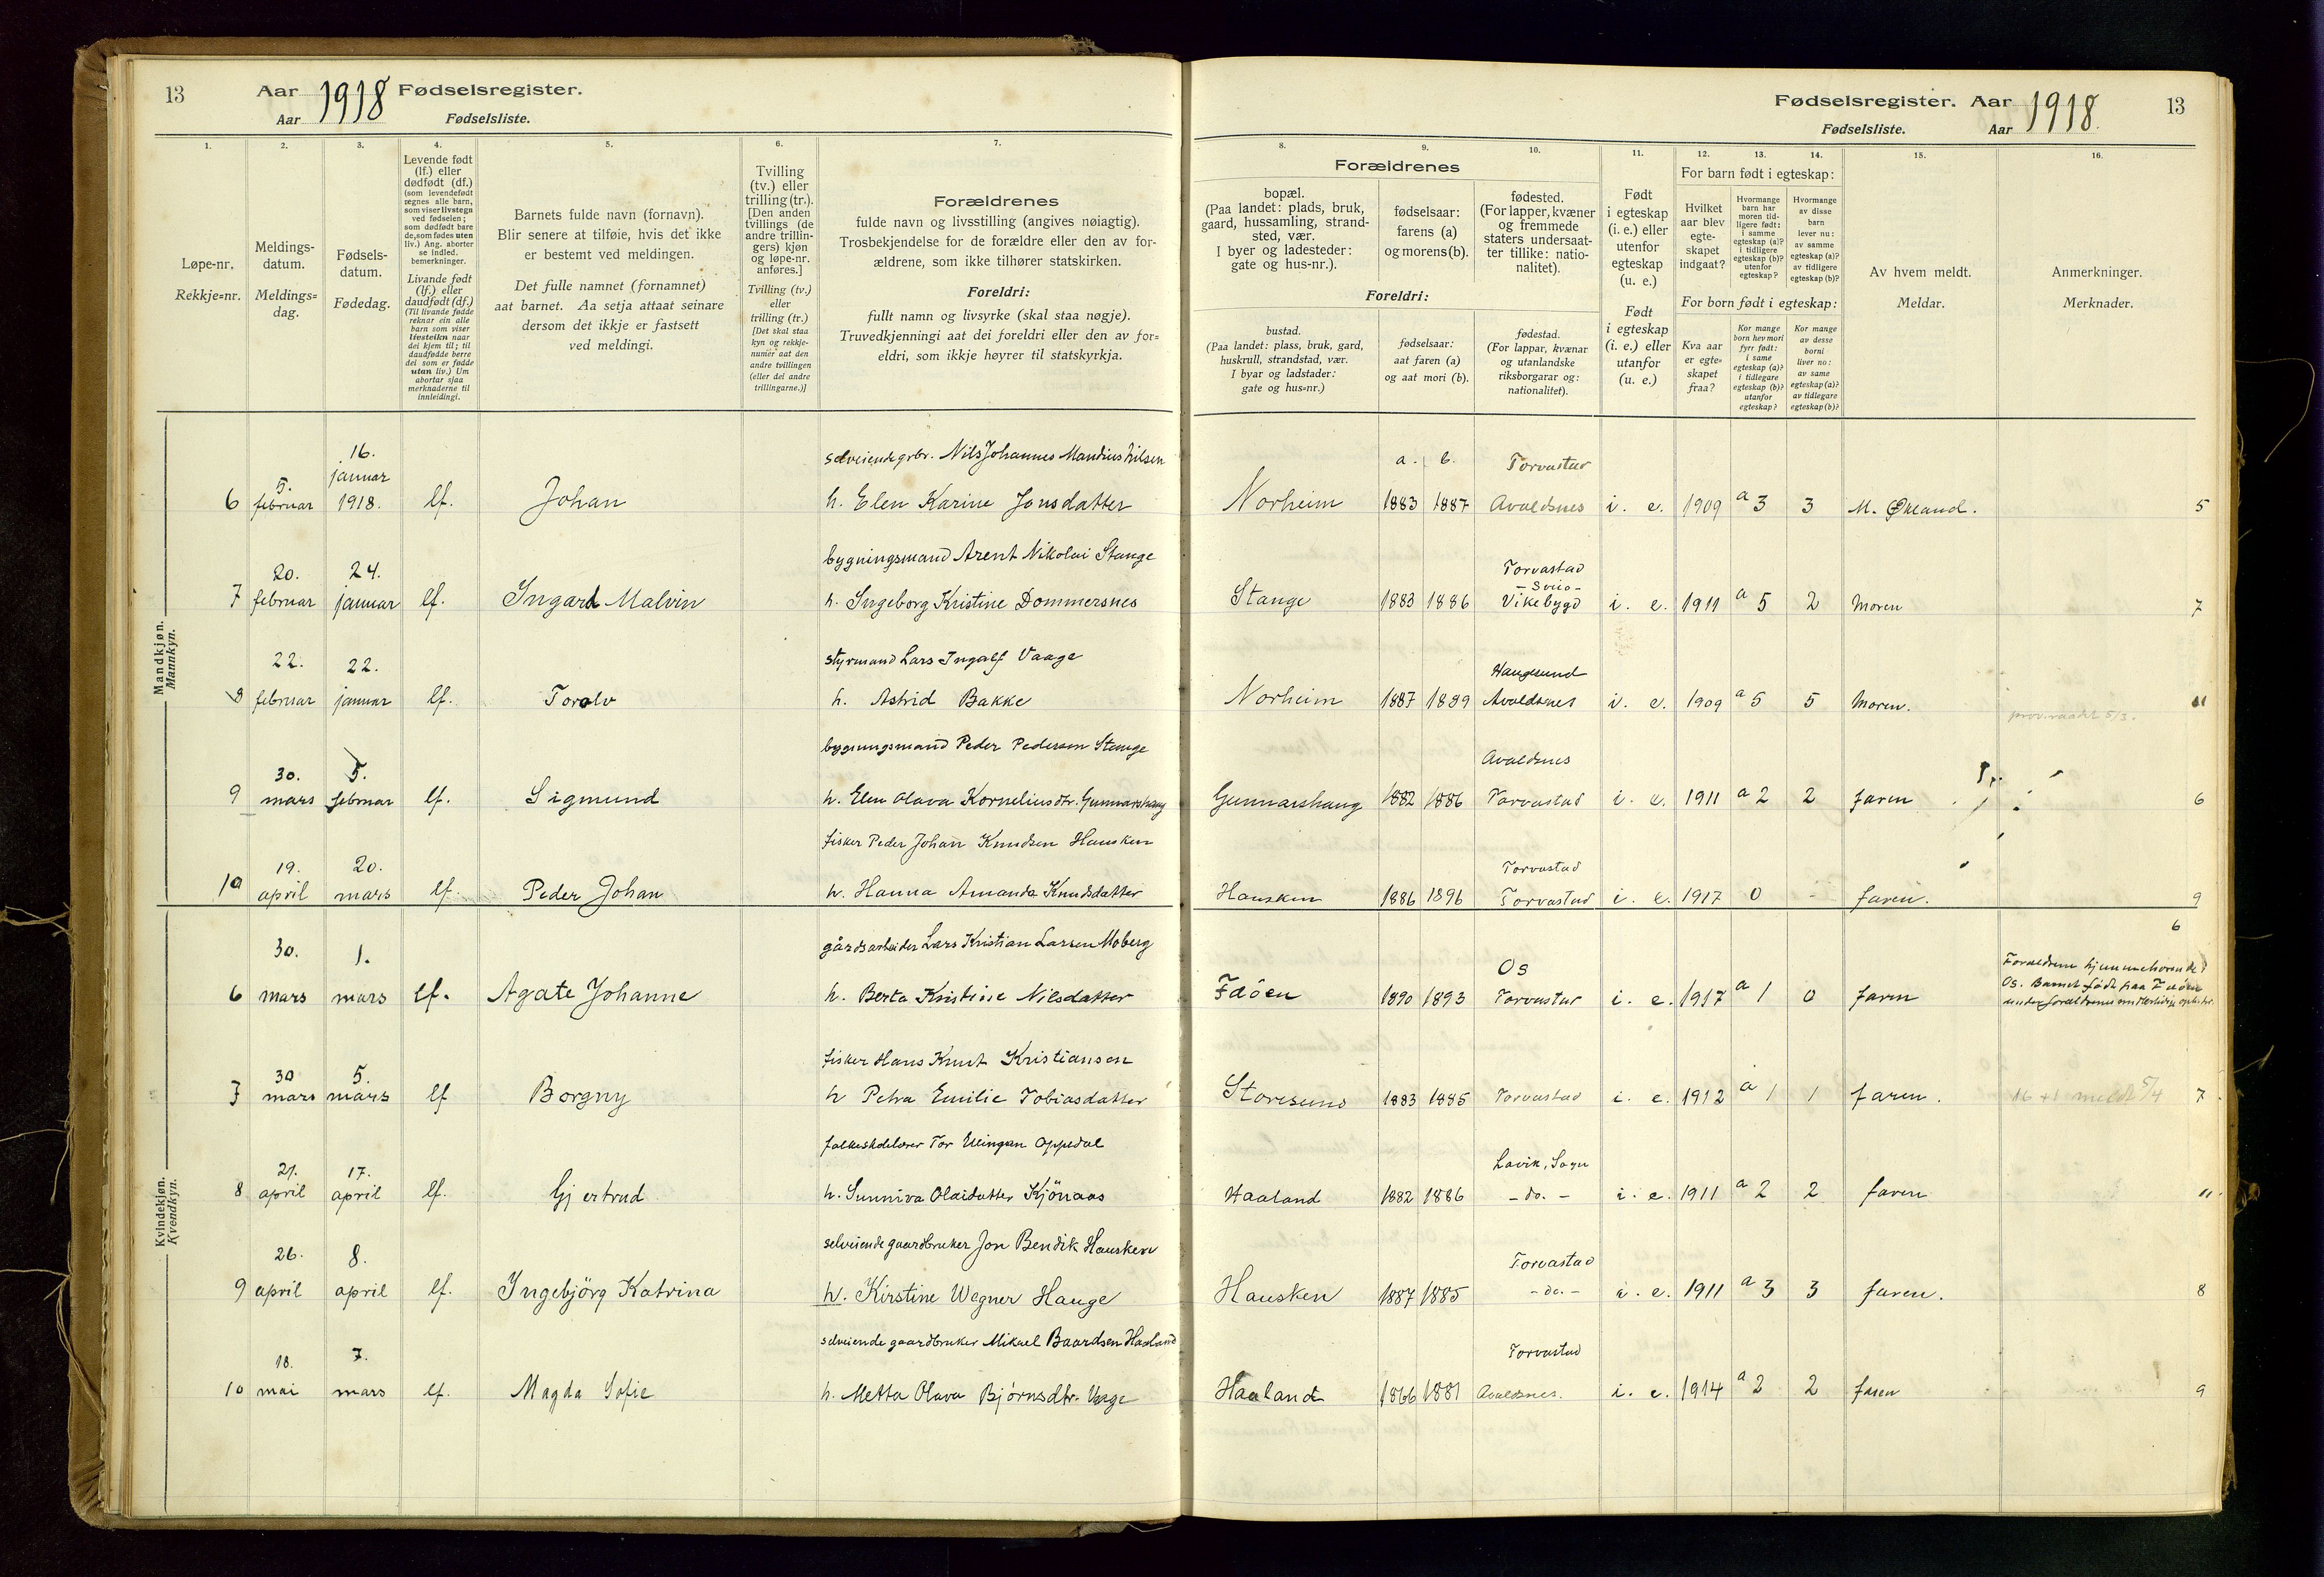 13
Aar 1918 Fødselsregister.
Aar Fødselsliste.
1.
2.
3.
4.
5.
6.
7.
Løpe-nr.
Rekkje=nr.
Meldings-
datum.
Meldings=
dag.
Fødsels-
datum.
Fødedag.
Levende født
(lf.) eller
dødfødt (df.)
(som levendefødt
regnes alle barn,
som viser livstegn
ved fødselen;
som dødfødt bare
de, som fødes uten
liv.) Ang. aborter
se indled.
bemerkninger.
Livande født
(lf.) eller
daudfødt (df.)
(Til livande fødde
reknar ein alle
barn som viser
livsteikn naar
dei kjem til; til
daudfødde berre
dei som er fødde
utan liv.) Um
abortar sjaa
merknaderne til
innleidingi.
Barnets fulde navn (fornavn).
Blir senere at tilføie, hvis det ikke
er bestemt ved meldingen.
Det fulle namnet (fornamnet)
aat barnet. Aa setja attaat seinare
dersom det ikkje er fastsett
ved meldingi.
Tvilling
(tv.) eller
trilling (tr.).
[Den anden
tvillings (de
andre trillin-
gers) kjøn
og løpe-nr.
anføres.]
Tvilling (tv.)
eller
trilling (tr.)
[Det skal staa
kyn og rekkje-
numer aat den
andre tvillingen
(eller dei andre
trillingarne.)]
Forældrenes
fulde navn og livsstilling (angives nøiagtig).
Trosbekjendelse for de forældre eller den av for-
ældrene, som ikke tilhører statskirken.
Foreldri:
fullt namn og livsyrke (skal staa nøgje).
Truvedkjenningi aat dei foreldri eller den av for=
eldri, som ikkje høyrer til statskyrkja.
Mandkjøn.
Mannkyn.
16.
januar
selveiende grbr. Nils Johannes Mandius Nilsen
6 5. februar 1918. lf. Johan h. Elen Karine Jonsdatter
bygningsmand Arent Nikolai Stange
20. 24.
7 februar januar lf. Ingard Malvin h. Ingeborg Kristine Dommersnes
styrmand Lars Ingolf Vaage
22. 22.
8 februar januar lf. Toralv h. Astrid Bakke
bygningsmand Peder Pedersen Stange
30. 5.
9 mars februar lf. Sigmund h. Elen Olava Korneliusdtr. Gunnarshaug
fisker Peder Johan Knudsen Hausken
19. 20.
10 april mars lf. Peder Johan h. Hanna Amanda Knudsdatter
Kvindekjøn.
Kvendkyn.
gårdsarbeider Lars Kristian Larsen Moberg
30. 1.
6 mars mars lf. Agate Johanne h. Berta Kristine Nilsdatter
fisker Hans Knut Kristiansen
30 5.
7 mars mars lf Borgny h Petra Emilie Tobiasdatter
folkeskolelærer Tor Ellingsen Oppedal
21. 17.
8 april april lf. Gjertrud h. Sunniva Olaidatter Kjönaas
selveiende gaardbruker Jon Bendik Hausken
26. 8.
9 april april lf. Ingebjörg Katrina h. Kirstine Wegner Hauge
selveiende gaardbruker Mikael Baardsen Haaland
18. 7.
10 mai mars lf. Magda Sofie h. Metta Olava Björnsdtr. Vaage
Fødselsregister. Aar 1918 13
Fødselsliste. Aar
8.
9.
10.
11.
12.
13.
14.
15.
16.
Forældrenes
bopæl.
(Paa landet: plads, bruk,
gaard, hussamling, strand-
sted, vær.
I byer og ladesteder:
gate og hus-nr.).
fødselsaar:
farens (a)
og morens (b).
fødested.
(For lapper, kvæner
og fremmede
staters undersaat-
ter tillike: natio-
nalitet).
Foreldri:
bustad.
(Paa landet: plass, bruk, gard,
huskrull, strandstad, vær.
I byar og ladstader:
gate og hus=nr.)
fødselsaar:
aat faren (a)
og aat mori (b).
fødestad.
(For lappar, kvænar
og utanlandske
riksborgarar og:
nationalitet).
Født
i egteskap
(i. e.) eller
utenfor
egteskap
(u. e.)
Født
i egteskap
(i. e.) eller
utanfor
(u. e.)
For barn født i egteskap:
Hvilket
aar blev
egte-
skapet
indgaat?
Hvormange
barn har
moren tid-
ligere født:
i samme
egteskap (a)?
i tidligere
egteskap (b)?
utenfor
egteskap?
Hvormange
av disse
barn
lever nu:
av samme
egteskap (a)?
av tidligere
egteskap (b)?
For born født i egteskap:
Kva aar
er egte=
skapet
fraa?
Kor mange
born hev mori
fyrr født:
i same
egteskap (a)?
i tidlegare
egteskap (b)?
utanfor
egteskap?
Kor mange
av desse
borni
liver no:
av same
egteskap (a)?
av tidlegare
egteskap (b)?
Av hvem meldt.
Meldar.
Anmerkninger.
Merknader.
a. b. Torvastad
Norheim 1883 1887 Avaldsnes i. e. 1909 a 3 3 M. Økland. 5
Torvastad
- Sveio -
Stange 1883 1886 Vikebygd i. e. 1911 a 5 2 Moren 7
Haugesund
Norheim 1887 1889 Avaldsnes i. e. 1909 a 5 5 Moren. 11
Avaldsnes
Gunnarshaug 1882 1886 Torvastad i. e. 1911 a 2 2 faren 6
Torvastad
Hausken 1886 1896 Torvastad i. e. 1917 0 - faren. 9
6
Os
Fæöen 1890 1893 Torvastad i. e. 1917 a 1 0 faren
Forældrene hjemmehörende i
Os. Barnet födt paa Fæöen
under forældrenes midlertidige ophold.
Storesund 1883 1885 Torvastad i. e. 1912 a 1 1 faren. 16 +1 meldt 5/4 7
Lavik, Sogn
Haaland 1882 1886 - do. - i. e. 1911 a 2 2 faren 11.
Torvastad
Hausken 1887 1885 - do. - i. e. 1911 a 3 3 faren. 8
Torvastad
Haaland 1866 1881 Avaldsnes. i. e. 1914 a 2 2 faren 9